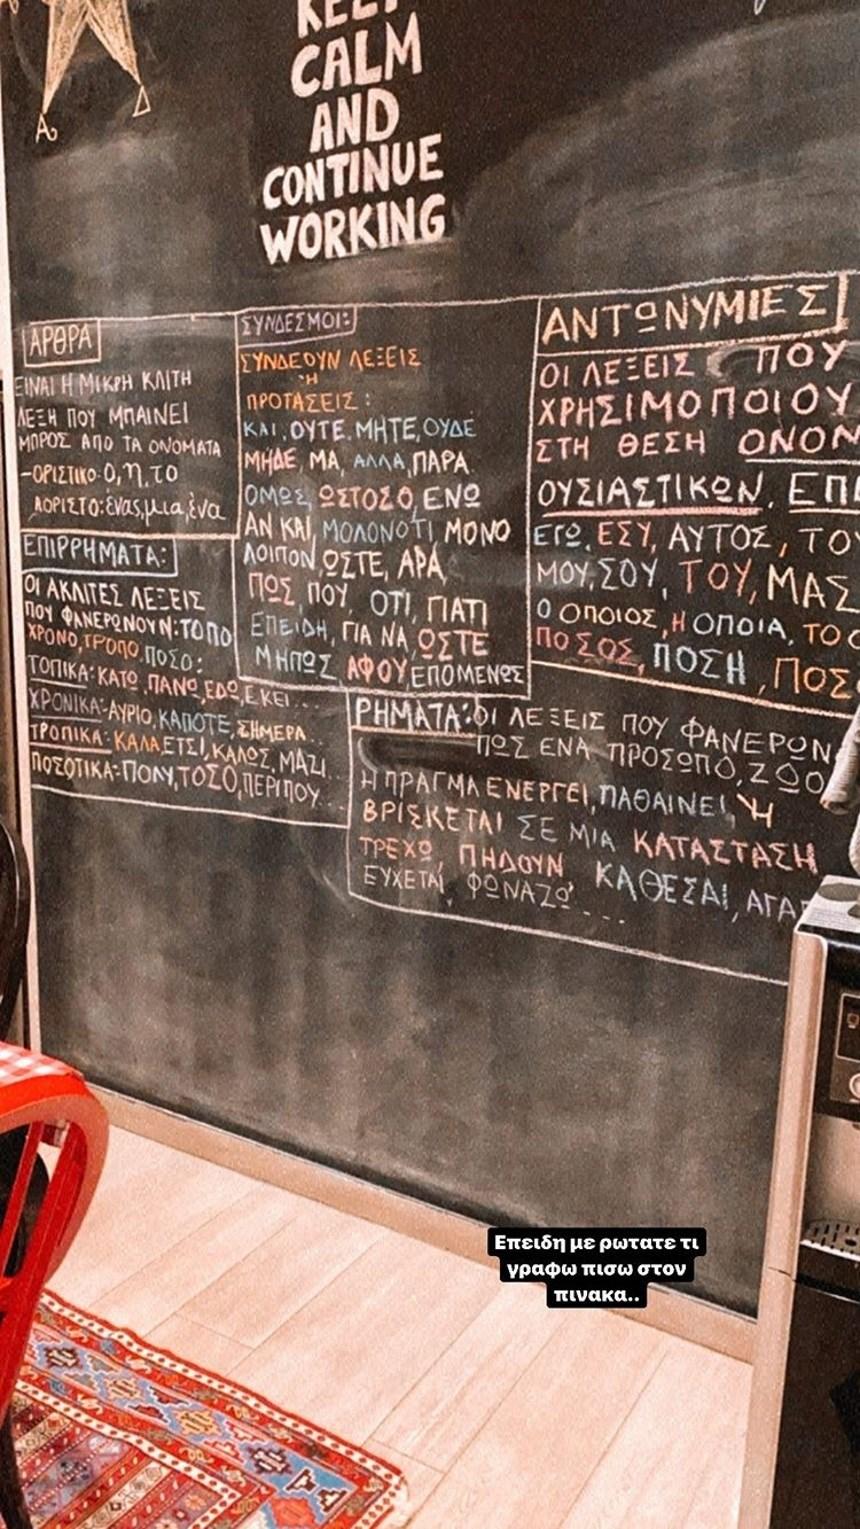 KEEP
CALM
AND
CONTINUE
WORKING
ΆΡΘΡΑ
ΕΙΝΑΙ Η ΜΙΚΡΗ ΚΛΙΤΗ
ΛΕΞΗ ΠΟΥ ΜΠΑΙΝΕΙ
ΜΠΡΟΣ ΑΠΟ ΤΑ ΟΝΟΜΑΤΑ
-ΟΡΙΣΤΙΚΟ: Ο, η, το
ΑΟΡΙΣΤΟ: ένας, μια, ένα
ΕΠΙΡΡΗΜΑΤΑ:
ΟΙ ΑΚΛΙΤΕΣ ΛΕΞΕΙΣ
ΠΟΥ ΦΑΝΕΡΩΝΟΥΝ: ΤΟΠΟ
ΧΡΟΝΟ, ΤΡΟΠΟ, ΠΟΣΟ:
ΤΟΠΙΚΑ: ΚΑΤΩ, ΠΑΝΩ, ΕΔΩ, ΕΚΕΙ...
ΧΡΟΝΙΚΑ:-ΑΥΡΙΟ, ΚΑΠΟΤΕ, ΣΗΜΕΡΑ..
ΤΡΟΠΙΚΑ: ΚΑΛΑ, ΕΤΣΙ, ΚΑΛΩΣ, ΜΑΖΙ...
ΠΟΣΟΤΙΚΑ: ΠΟΛΥ, ΤΟΣΟ, ΠΕΡΙΠΟΥ...
ΣΥΝΔΕΣΜΟΙ:
ΣΥΝΔΕΟΥΝ ΛΕΞΕΙΣ
Ή
ΠΡΟΤΑΣΕΙΣ:
ΚΑΙ, ΟΥΤΕ, ΜΗΤΕ, ΟΥΔΕ
ΜΗΔΕ, ΜΑ, ΑΛΛΑ, ΠΑΡΑ
ΟΜΩΣ, ΩΣΤΟΣΟ, ΕΝΩ
ΑΝ ΚΑΙ, ΜΟΛΟΝΟΤΙ ΜΟΝΟ
ΛΟΙΠΟΝ, ΩΣΤΕ, ΑΡΑ,
ΠΩΣ, ΠΟΥ, ΟΤΙ, ΓΙΑΤΙ
ΕΠΕΙΔΗ, ΓΙΑ ΝΑ, ΩΣΤΕ
ΜΗΠΩΣ, ΑΦΟΥ, ΕΠΟΜΕΝΩΣ
ΑΝΤΩΝΥΜΙΕΣ
ΟΙ ΛΕΞΕΙΣ ΠΟΥ
ΧΡΗΣΙΜΟΠΟΙΟΥ
ΣΤΗ ΘΕΣΗ ΟΝΟΜ
ΟΥΣΙΑΣΤΙΚΩΝ, ΕΠΙ
ΕΓΩ, ΕΣΥ, ΑΥΤΟΣ, ΤΟΥ
ΜΟΥ, ΣΟΥ, ΤΟΥ, ΜΑΣ
Ο ΟΠΟΙΟΣ, Η ΟΠΟΙΑ, ΤΟ Ο
ΠΟΣΟΣ, ΠΟΣΗ, ΠΟΣ
ΡΗΜΑΤΑ: ΟΙ ΛΕΞΕΙΣ ΠΟΥ ΦΑΝΕΡΩΝ
ΠΩΣ ΕΝΑ ΠΡΟΣΩΠΟ, ΖΩΟ
Η ΠΡΑΓΜΑ ΕΝΕΡΓΕΙ, ΠΑΘΑΙΝΕΙ, Ή
ΒΡΙΣΚΕΤΑΙ ΣΕ ΜΙΑ ΚΑΤΑΣΤΑΣΗ
ΤΡΕΧΩ, ΠΗΔΟΥΝ ΚΑΘΕΣΑΙ, ΑΓΑΠ
ΕΥΧΕΤΑΙ, ΦΩΝΑΖΩ....
Επειδη με ρωτατε τι
γραφω πισω στον
πινακα..